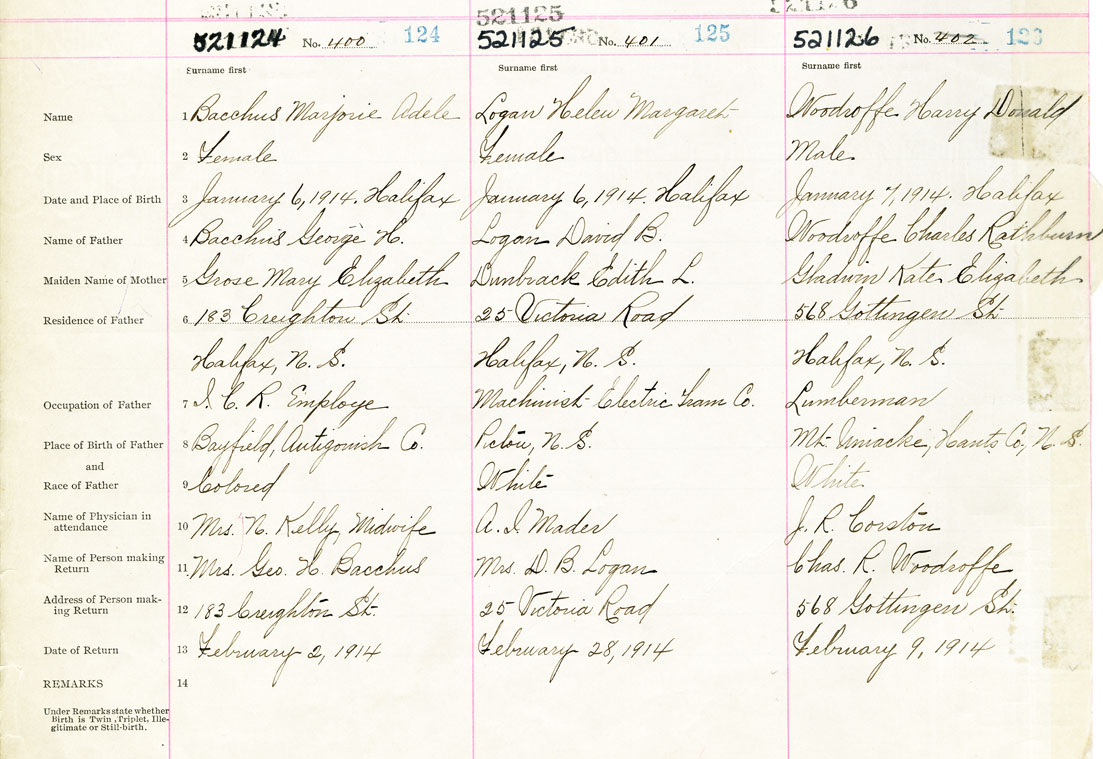 521125
521126
521124 No. 400 124 521125 No. 401 125 521126 No. 402 126
Surname first Surname first Surname first
Name 1 Bacchus Marjorie Adele Logan Helen Margaret Woodroffe Harry Donald
Sex 2 Female Female Male
Date and Place of Birth 3 January 6, 1914. Halifax January 6, 1914. Halifax January 7, 1914. Halifax
Name of Father 4 Bacchus George H. Logan David B. Woodroffe Charles Rathburn
Maiden Name of Mother 5 Grose Mary Elizabeth Dunbrack Edith L. Gladwin Kate Elizabeth
Residence of Father 6 183 Creighton St. 25 Victoria Road 568 Gottingen St.
Halifax, N. S. Halifax, N. S. Halifax, N. S.
Occupation of Father 7 I. C. R. Employe Machinist Electric Tram Co. Lumberman
Place of Birth of Father 8 Bayfield, Antigonish Co. Pictou, N. S. Mt. Uniacke, Hants Co., N. S.
and
Race of Father 9 Colored White White
Name of Physician in
attendance 10 Mrs. N. Kelly, Midwife A. I. Mader J. R. Corston
Name of Person making
Return 11 Mrs. Geo. H. Bacchus Mrs. D. B. Logan Chas. R. Woodroffe
Address of Person mak-
ing Return 12 183 Creighton St. 25 Victoria Road 568 Gottingen St.
Date of Return 13 February 2, 1914 February 28, 1914 February 9, 1914
REMARKS 14
Under Remarks state whether
Birth is Twin, Triplet, Ille-
gitimate or Still-birth.